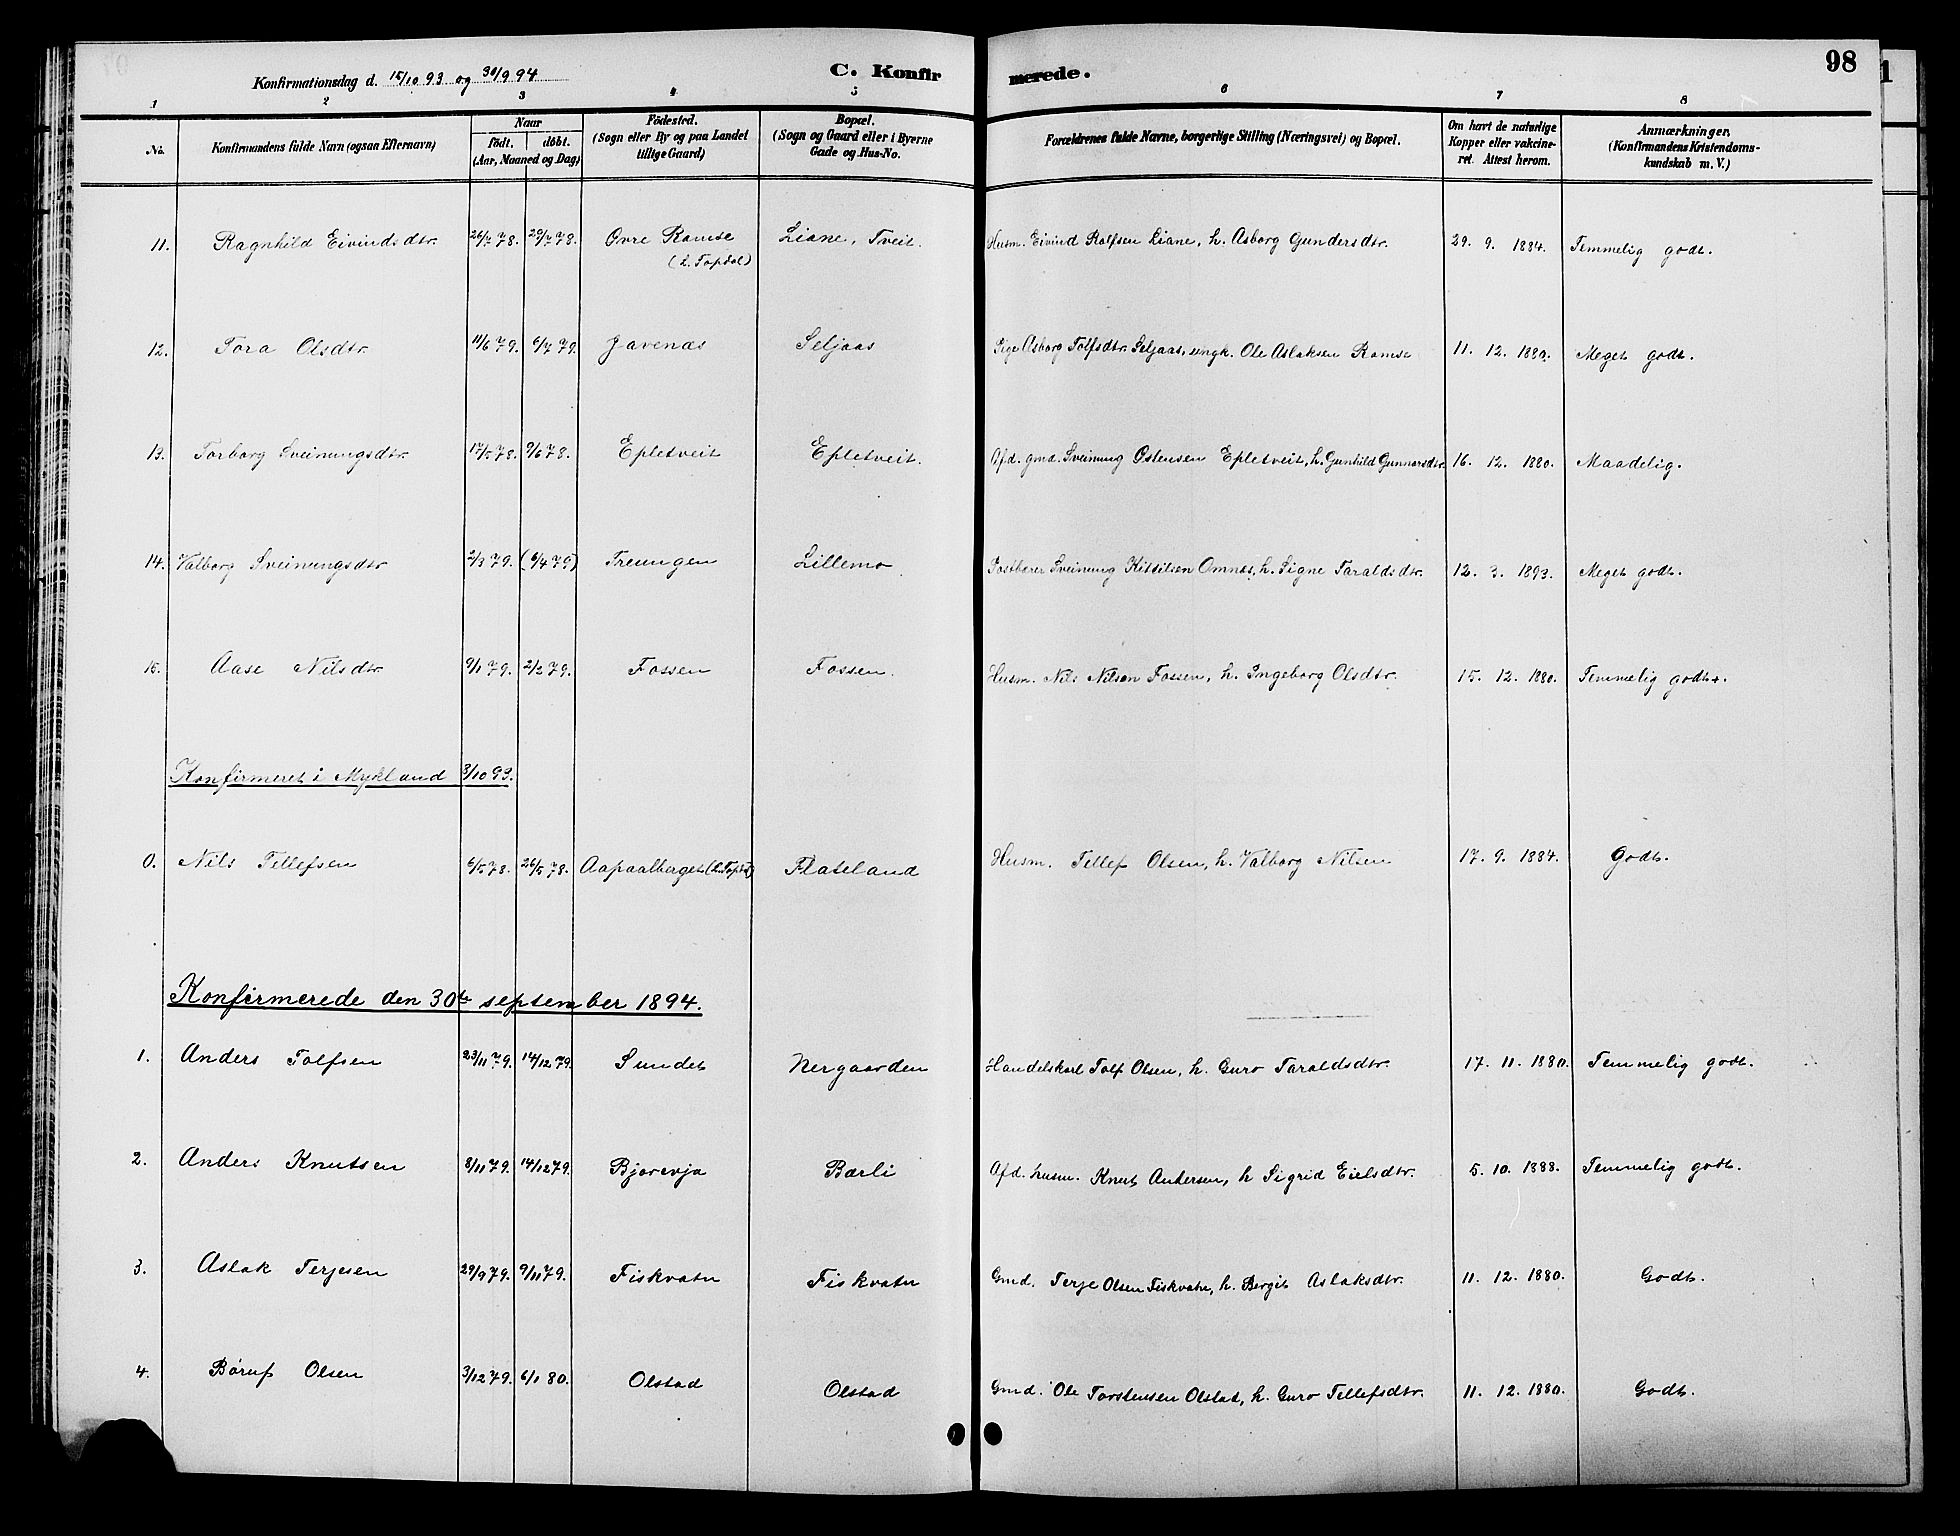 98
1
Konfirmationsdag d. 15/10 93 og 30/9 94
C. Konfirmerede.
1 2 3 4 5 6 7 8
No. | Konfirmandens fulde Navn (ogsaa Efternavn) | Naar födt. döbt. (Aar, Maaned og Dag) | Födested. (Sogn eller By og paa Landet tillige Gaard) | Bopæl. (Sogn og Gaard eller i Byerne Gade og Hus-No. | Forældrenes fulde Navne, borgerlige Stilling (Næringsvei) og Bopæl. | Om havt de naturlige Kopper eller vakcineret. Attest herom. | Anmærkninger. (Konfirmandens Kristendomskundskab m. V.)
11. Ragnhild Eivindsdtr. 26/7 78. 29/7 78. Ovre Ramse (i Topdal) Liane, Tveit. Husm. Eivind Rolfsen Liane, h. Asborg Gundersdtr. 29. 9. 1884. Temmelig godt.
12. Tora Olsdtr. 11/6 79. 6/7 79. Javenæs Seljaas Pige Asborg Tolfsdtr. Seljaas, ungk. Ole Aslaksen Ramse 11. 12. 1880. Meget godt.
13. Torborg Sveinungsdtr. 17/5 78. 9/6 78. Epletveit Epletveit. Afd. gmd. Sveinung Ostensen Epletveit, h. Gunhild Gunnarsdtr. 16. 12. 1880. Maadelig.
14. Valborg Sveinungsdtr 2/3 79. (6/4 79) Treungen Lillemo Postbærer Sveinung Kittilsen Omnæs, h. Signe Taraldsdtr. 12. 3. 1893. Meget godt.
15. Aase Nilsdtr. 9/1 79. 2/2 79. Fossen Fossen. Husm. Nils Nilsen Fossen, h. Ingeborg Olsdtr. 15. 12. 1880. Temmelig godt.
Konfirmeret i Mykland 3/10 93.
0. Nils Tellefsen 6/5 78. 26/5 78. Aapaalberget (i Topdal) Flateland Husm. Tellef Olsen, h. Valborg Nilsen 17. 9. 1884. Godt.
Konfirmerede den 30te september 1894.
1. Anders Tolfsen 23/11 79. 14/12 79. Sundet Nergaarden Handelskarl Tolf Olsen, h. Guro Taraldsdtr. 17. 11. 1880. Temmelig godt.
2. Anders Knutsen 8/11 79. 14/12 79. Bjorevja Bærli Afd. husm. Knut Andersen, h Sigrid Eielsdtr. 5. 10. 1888. Temmelig godt.
3. Aslak Terjesen 29/9 79. 9/11 79. Fiskvatn Fiskvatn Gmd. Terje Olsen Fiskvatn, h. Bergit Aslaksdtr. 11. 12. 1880. Godt.
4. Børuf Olsen 3/12 79. 6/1 80. Olstad Olstad Gmd. Ole Torstensen Olstad, h. Guro Tellefsdtr. 11. 12. 1880. Godt.